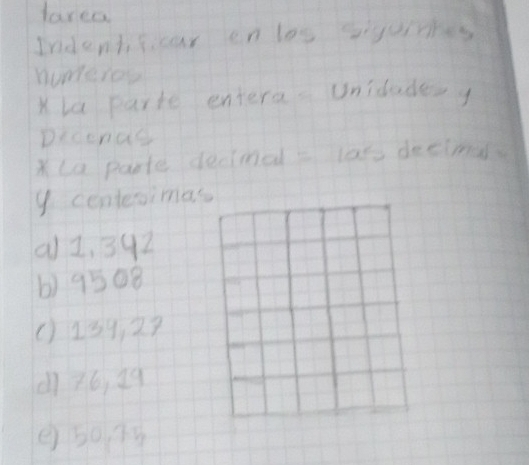 tarea
Indentificar en los siguintes
numeros
* La parte entera = Unidades y
Decenas
* La parte decimal = las decimal
y centesimas
a) 1,342
b) 9508
c) 134,27
d) 76,19
e) 50,75